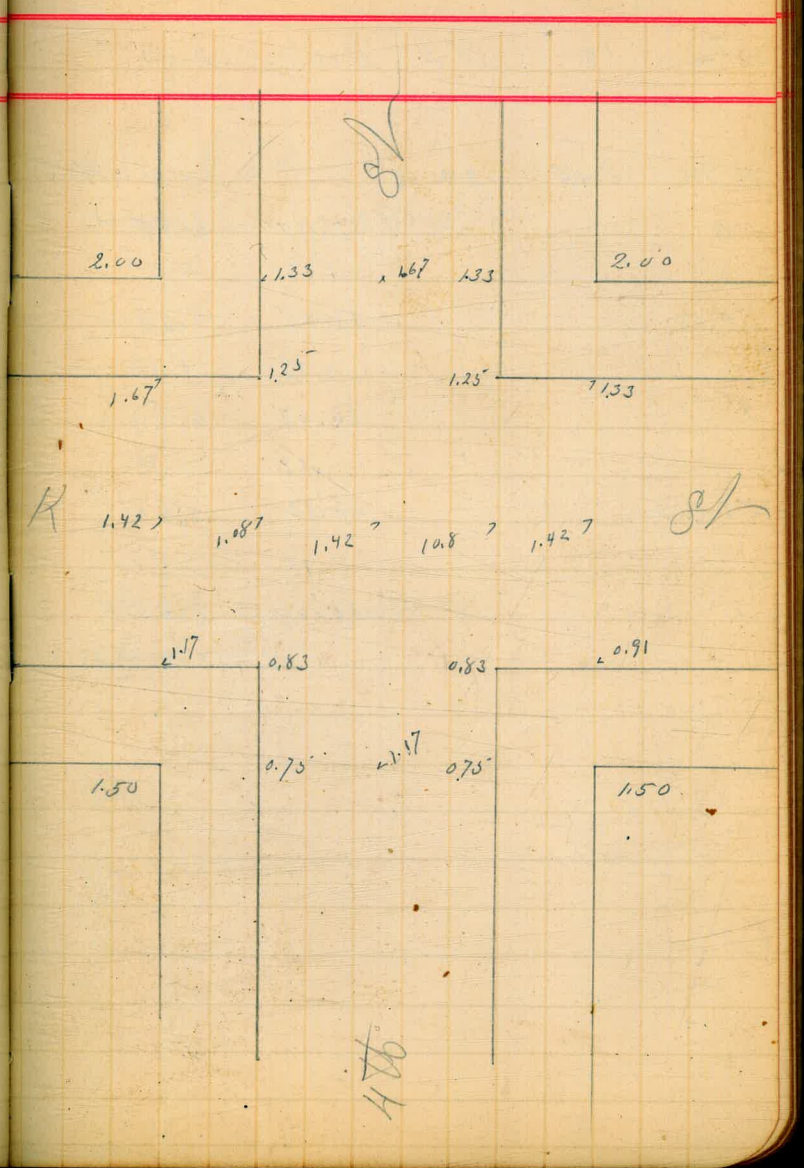 St
2.00 1.33 1.67 1.33 2.00
1.25 1.25
1.67 1.33
K 1.42 1.08 1.42 10.8 1.42 St
1.17 0.83 0.83 0.91
0.75 1.17 0.75
1.50 1.50
4th